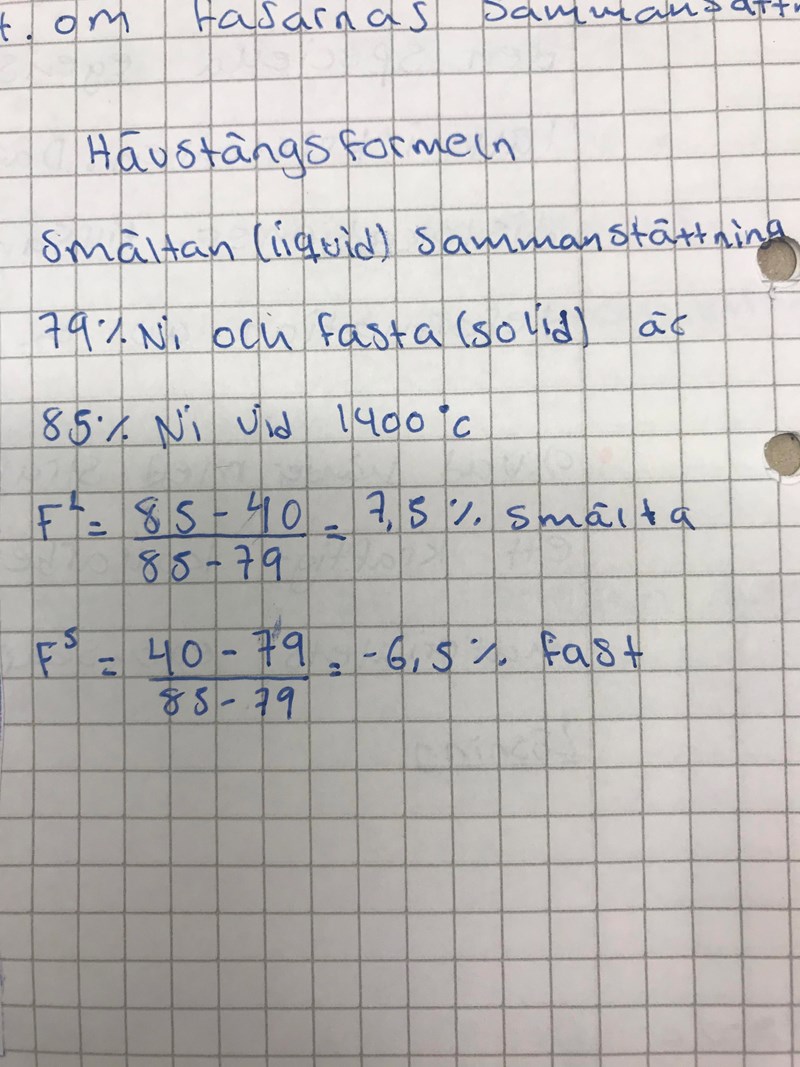 t. om fasarnas sammansättn
Hävstångsformeln
Smältan (liquid) sammanstättning
79% Ni och fasta (solid) är
85% Ni vid 1400°C
F^L = (85-40)/(85-79) = 7,5 % smälta
F^S = (40-79)/(85-79) = -6,5 % fast